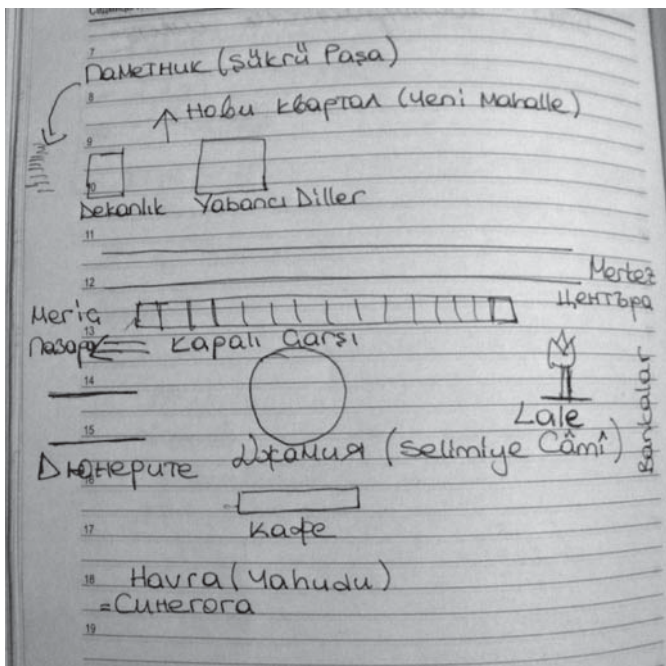 7
Паметник (Şükrü Paşa)
8
Нови квартал (Yeni Mahalle)
9
10
Dekanlık Yabancı Diller
11
12
Mertez
Центъра
Meria
13
Пазара
Kapalı Çarşı
14
Lale
Bankalar
15
Джамия (Selimiye Câmî)
Дюнерите
16
17
Кафе
18
Havra (Yahudu)
=Синегога
19